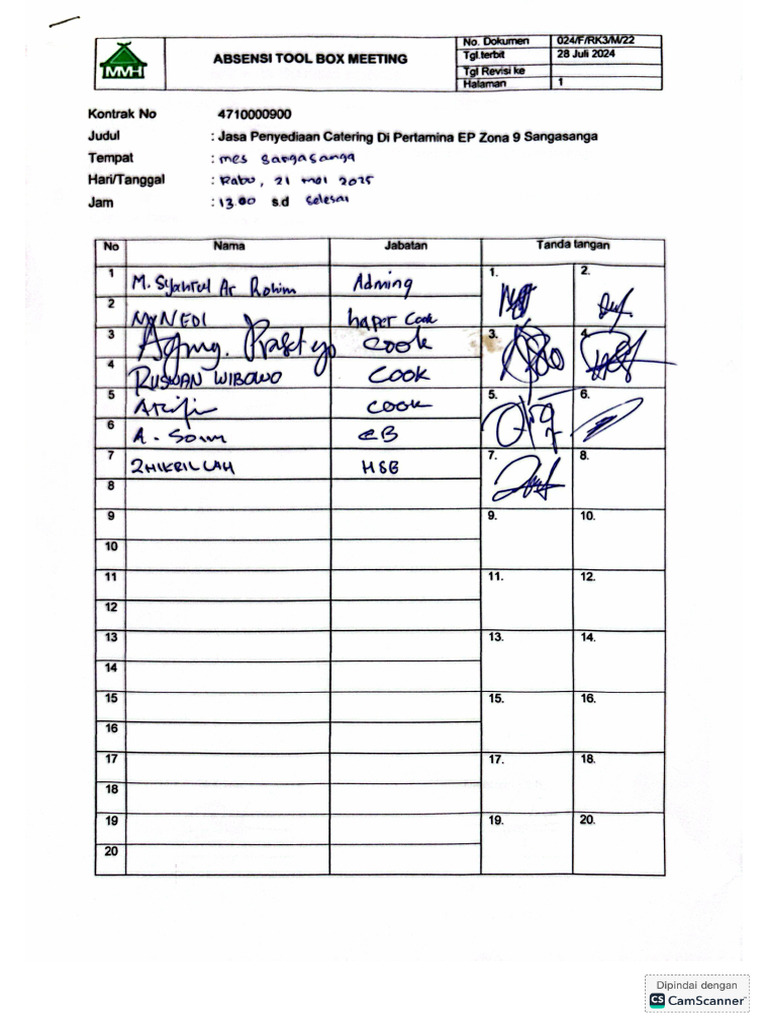 MMH
ABSENSI TOOL BOX MEETING
No. Dokumen 024/F/RK3/M/22
Tgl.terbit 28 Juli 2024
Tgl Revisi ke
Halaman 1
Kontrak No 4710000900
Judul : Jasa Penyediaan Catering Di Pertamina EP Zona 9 Sangasanga
Tempat : mes sangasanga
Hari/Tanggal : Rabu, 21 mei 2025
Jam : 13.00 s.d selesai
No Nama Jabatan Tanda tangan
1 M. Syahrul Ar Rohim Adming 1. 2.
2 MYNEDI haper Cook
3 Agung. Prasetyo Cook 3. 4.
4 RUSWAN WIBOWO COOK
5 Arifin COOK 5. 6.
6 A.
7 ZHIKRILLAH HSE 7. 8.
8
9 9. 10.
10
11 11. 12.
12
13 13. 14.
14
15 15. 16.
16
17 17. 18.
18
19 19. 20.
20
Dipindai dengan
CS CamScanner